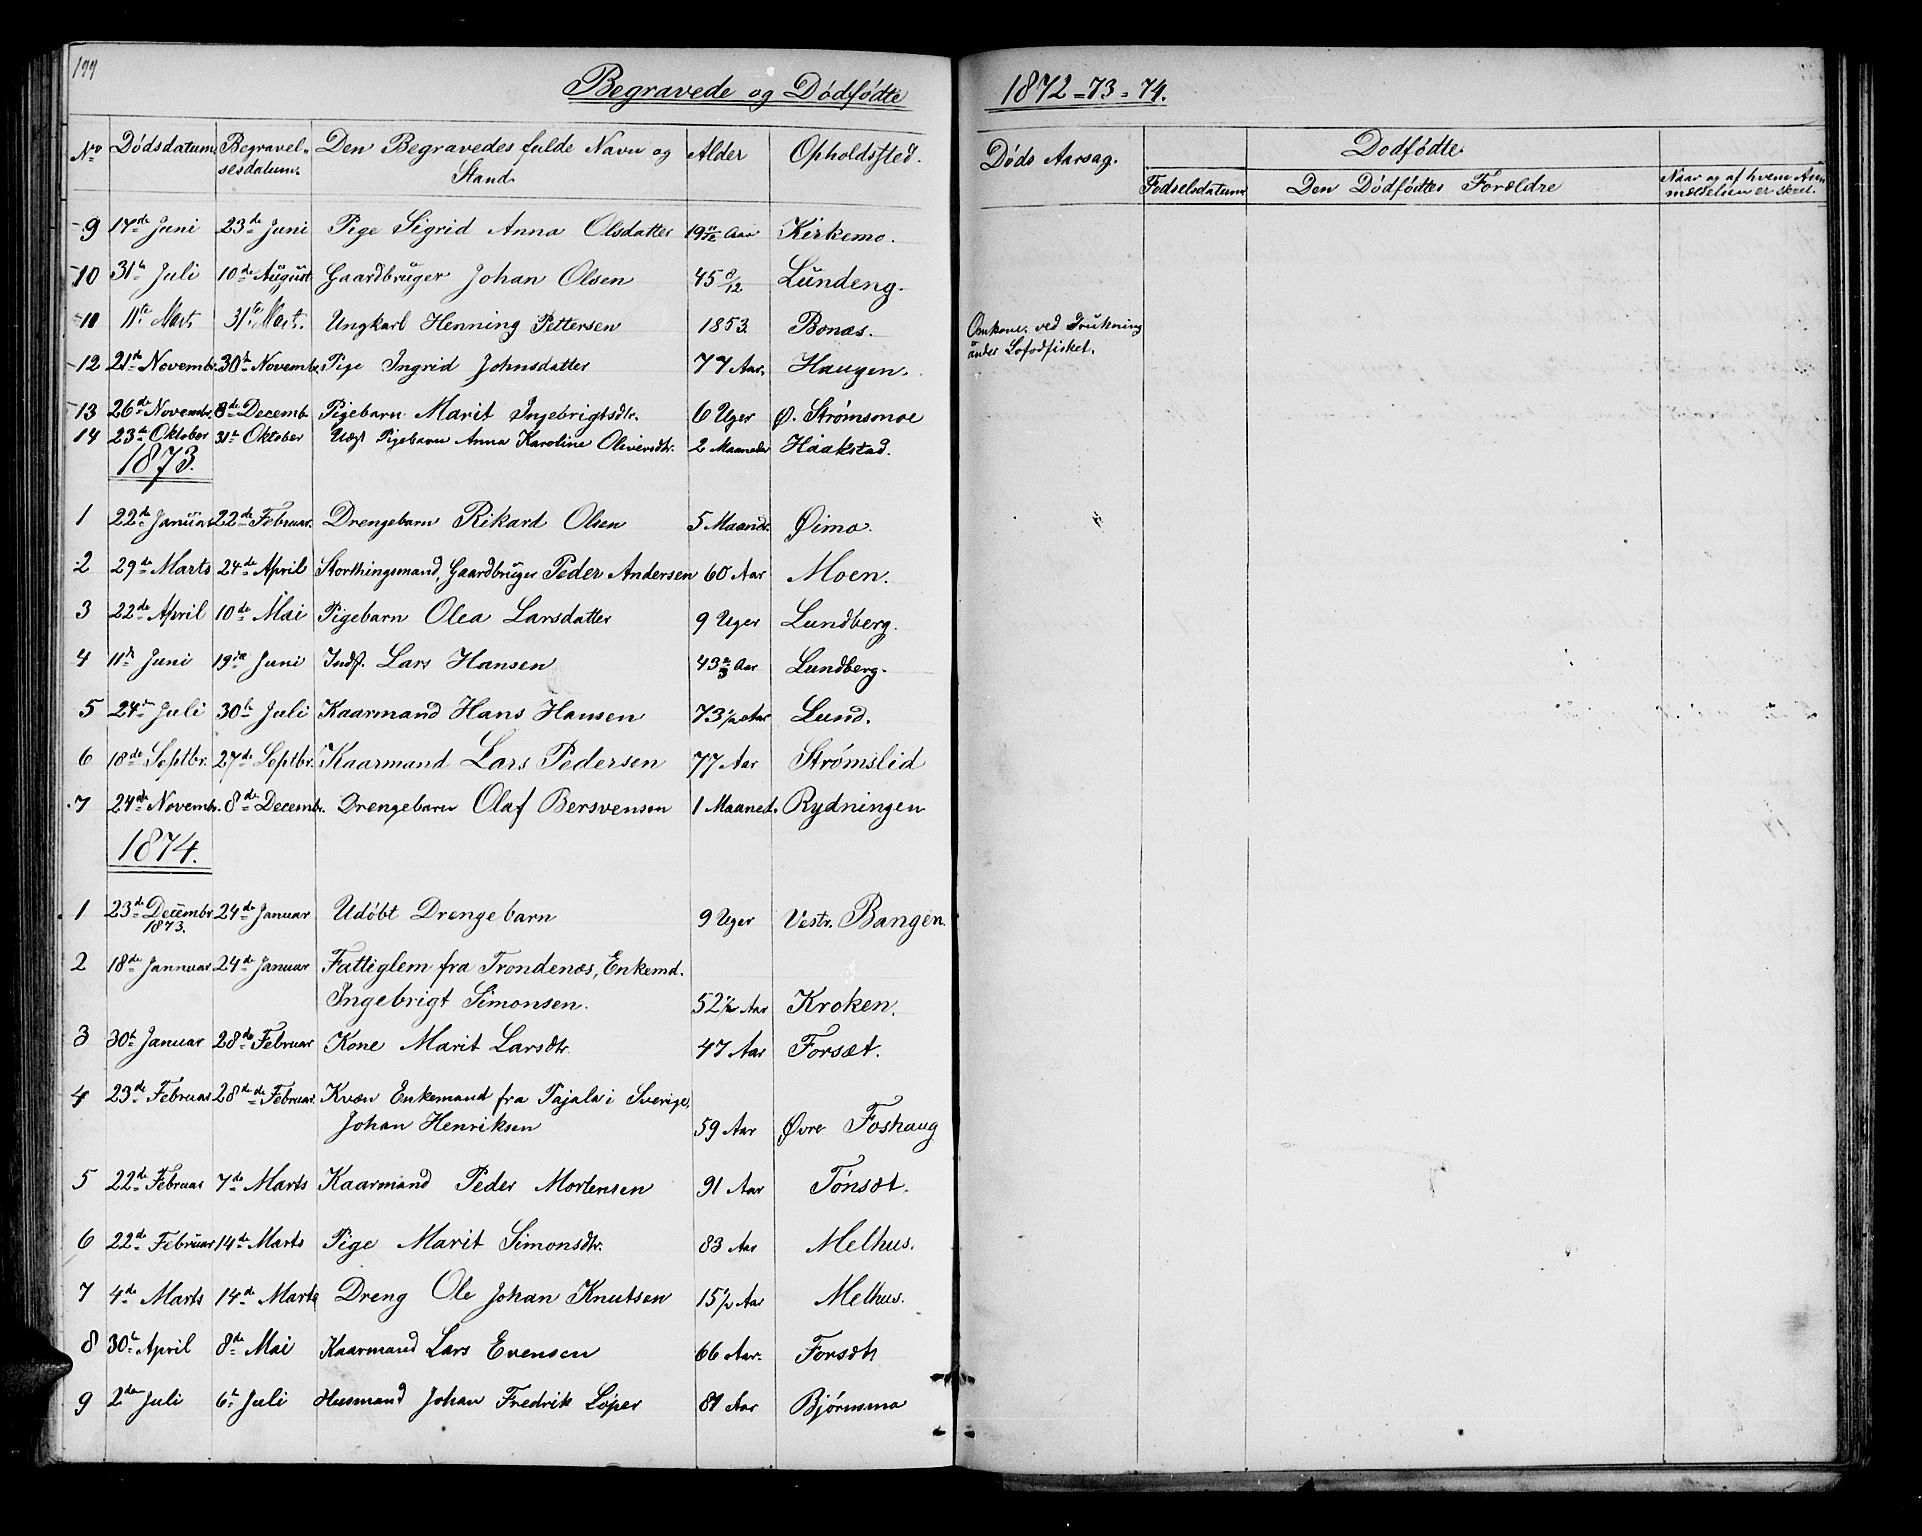 199
Begravede og Dødfødte
1872-73-74.
No Dødsdatum. Begravelsesdatum. Den Begravedes fulde Navn og Stand. Alder Opholdssted. Døds Aarsag. Dødfødte
Fødselsdatum Den Dødfødtes Forældre Naar og af hvem Anmældelsen er skeet.
9 17de Juni 23de Juni Pige Sigrid Anna Olsdatter 19 11/12 Aar Kirkemo.
10 31te Juli 10de August Gaardbruger Johan Olsen 45 8/12 Lundeng.
11 11te Mart. 31te Mart. Ungkarl Henning Pettersen 1853. Bonæs. Omkom. ved Drukning
under Lofodfisket.
12 21de Novembr. 30te Novembr. Pige Ingrid Johnsdatter 77 Aar. Haugen.
13 26de Novembr. 8de Decemb. Pigebarn Marit Ingebrigtsdtr. 6 Uger Ø. Strømsmoe
14 23de Oktober 31te Oktober Uægt Pigebarn Anna Karoline Oliversdtr. 2 Maaneder Haakstad.
1873.
1 22de Januar 22de Februar. Drengebarn Rikard Olsen 5 Maandr. Øimo.
2 29de Marts 24de April Storthingsmand, Gaardbruger Peder Andersen 60 Aar Moen.
3 22de April 10de Mai Pigebarn Olea Larsdatter 9 Uger Lundberg.
4 11te Juni 19de Juni Indst. Lars Hansen 43 2/3 Aar Lundberg.
5 24de Juli 30te Juli Kaarmand Hans Hansen 73 1/2 Aar Lund.
6 18de Septbr. 27de Septbr. Kaarmand Lars Pedersen 77 Aar Strømslid
7 24de Novembr. 8de Decembr. Drengebarn Olaf Bersvensen 1 Maaned. Rydningen
1874.
1 23de Decembr 24de Januar Udøbt Drengebarn 9 Uger Vestr. Bangen.
1873.
2 18de Jannuar 24de Januar Fattiglem fra Trondenæs, Enkemd.
Ingebrigt Simonsen. 52 1/2 Aar Kroken.
3 30te Januar 28de Februar Kone Marit Larsdtr 47 Aar Forsæt.
4 23de Februar 28de de Februar. Kvæn Enkemand fra Pajala i Sverige,
Johan Henriksen 59 Aar Øvre Foshaug
5 22de Februar 7de Marts Kaarmand Peder Mortensen 91 Aar Tønsæt.
6 22de Februar 14de Marts Pige Marit Simonsdtr. 83 Aar Melhus.
7 4de Marts 14de Marts Dreng Ole Johan Knutsen 15 1/2 Aar Melhus.
8 30te April 8de Mai Kaarmand Lars Evensen 66 Aar. Forsæt
9 2den Juli 6te Juli Husmand Johan Fredrik Löper 81 Aar Bjørnsmo